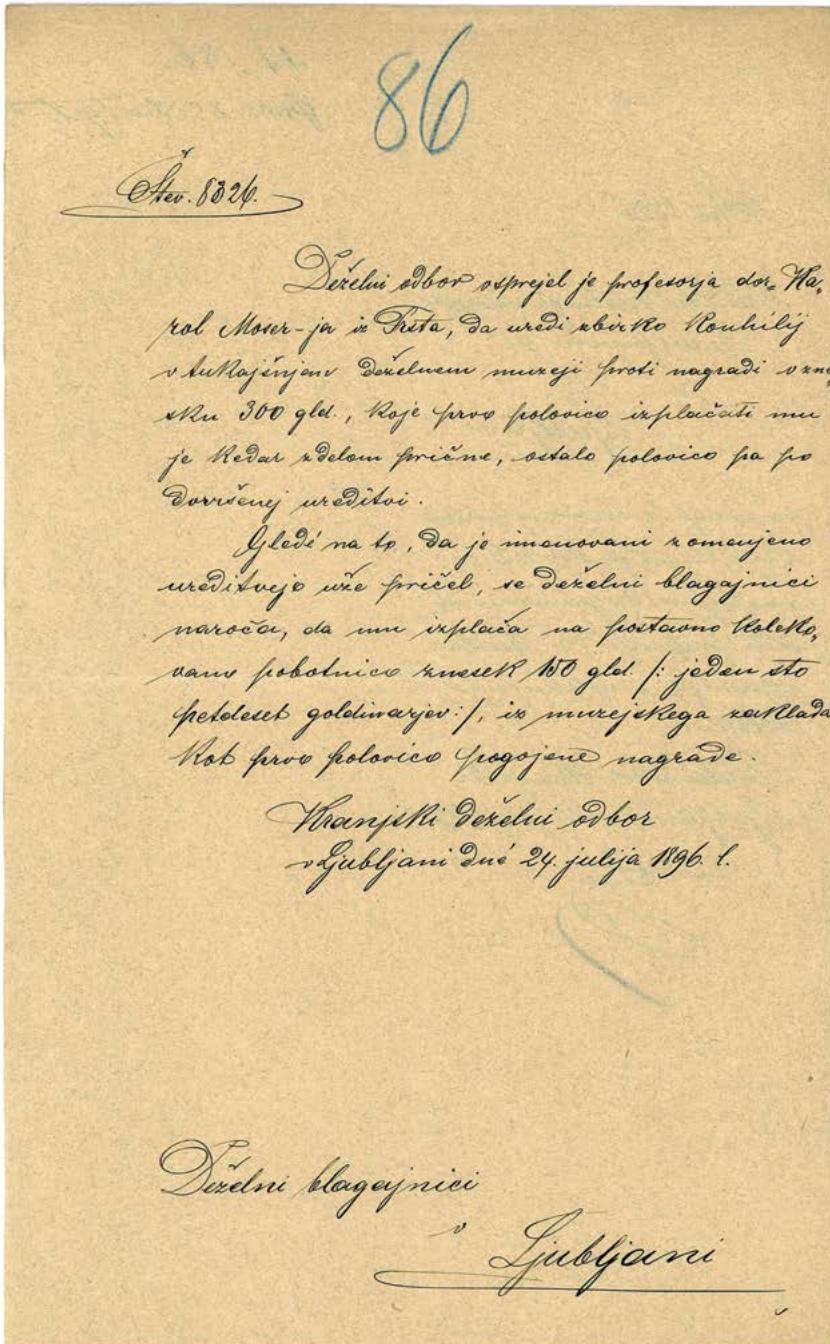 86
Štev. 8326.
Deželni odbor vsprejel je profesorja dor= Ka,
rol Moser-ja iz Trsta, da uredi zbirko konhilij
v tukajšnjem deželnem muzeji proti nagradi v zne,
sku 300 gld., koje prvo polovico izplačati mu
je kedar z delom prične, ostalo polovico pa po
dovršenej ureditvi.
Gledé na to, da je imenovani z omenjeno
ureditvejo uže pričel, se deželni blagajnici
naroča, da mu izplača na postavno koleko,
vano pobotnico znesek 150 gld. /: jeden sto
petdeset goldinarjev :/, iz muzejskega zaklada
kot prvo polovico pogojene nagrade.
Kranjski deželni odbor
v Ljubljani dné 24. julija 1896. l.
Deželni blagajnici
v
Ljubljani